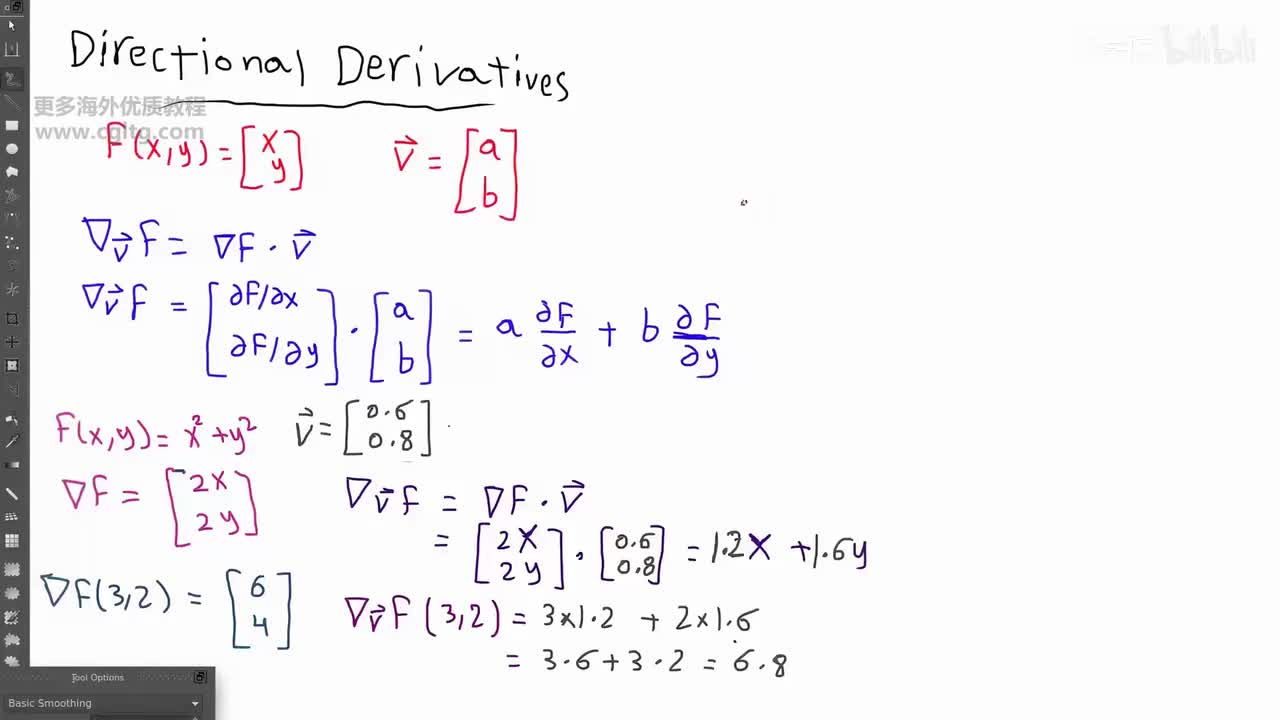 Directional Derivatives
更多海外优质教程
www.cgltg.com
bilibili
F(x,y) = [x y]
v⃗ = [a b]
∇v⃗ F = ∇F · v⃗
∇v⃗ F = [∂F/∂x ∂F/∂y] · [a b] = a ∂F/∂x + b ∂F/∂y
F(x,y) = x² + y²
v⃗ = [0.6 0.8]
∇F = [2x 2y]
∇v⃗ F = ∇F · v⃗
= [2x 2y] · [0.6 0.8] = 1.2x + 1.6y
∇F(3,2) = [6 4]
∇v⃗ F(3,2) = 3x1.2 + 2x1.6
= 3.6 + 3.2 = 6.8
Tool Options
Basic Smoothing